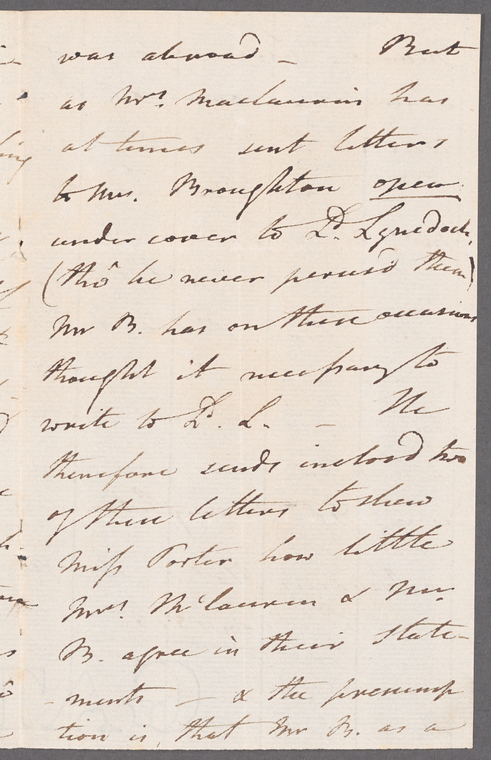 was abroad — But
as Mrs. Maclaurin has
at times sent letters
to Mrs. Broughton open
under cover to Ld. Lynedoch,
(tho' he never perus'd them)
Mr B. has on these occasions
thought it necessary to
write to Ld. L. — He
therefore sends inclosd two
of these letters to shew
Miss Porter how little
Mrs. McLaurin & Mr.
B. agree in their state-
-ments — & the presump
tion is, that Mr B. as a